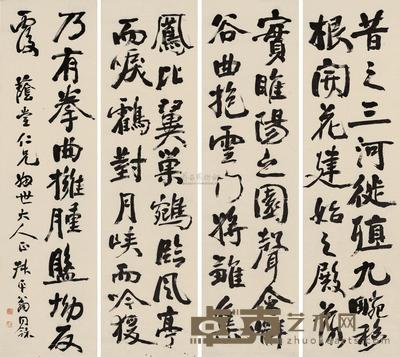 昔之三河徙殖九畹移
根開花建始之殿落
實睢陽之園聲含嶰
谷曲抱雲門將雛集
鳳比翼巢鵷臨風亭
而唳鶴對月峽而吟猨
乃有拳曲擁腫盤坳反
覆
蔭堂仁兄姻世大人正 叔平翁同龢
卓克艺术网